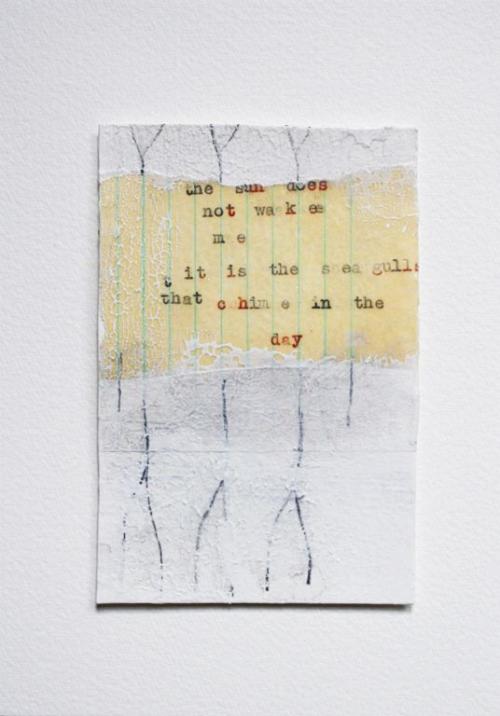 the sun does
not wake
me
it is the sea gulls
that chime in the
day